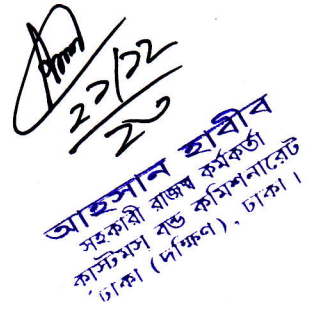 ২১/১২
২৩
আহসান হাবীব
সহকারী রাজস্ব কর্মকর্তা
কাস্টমস বন্ড কমিশনারেট
ঢাকা (দক্ষিণ), ঢাকা।